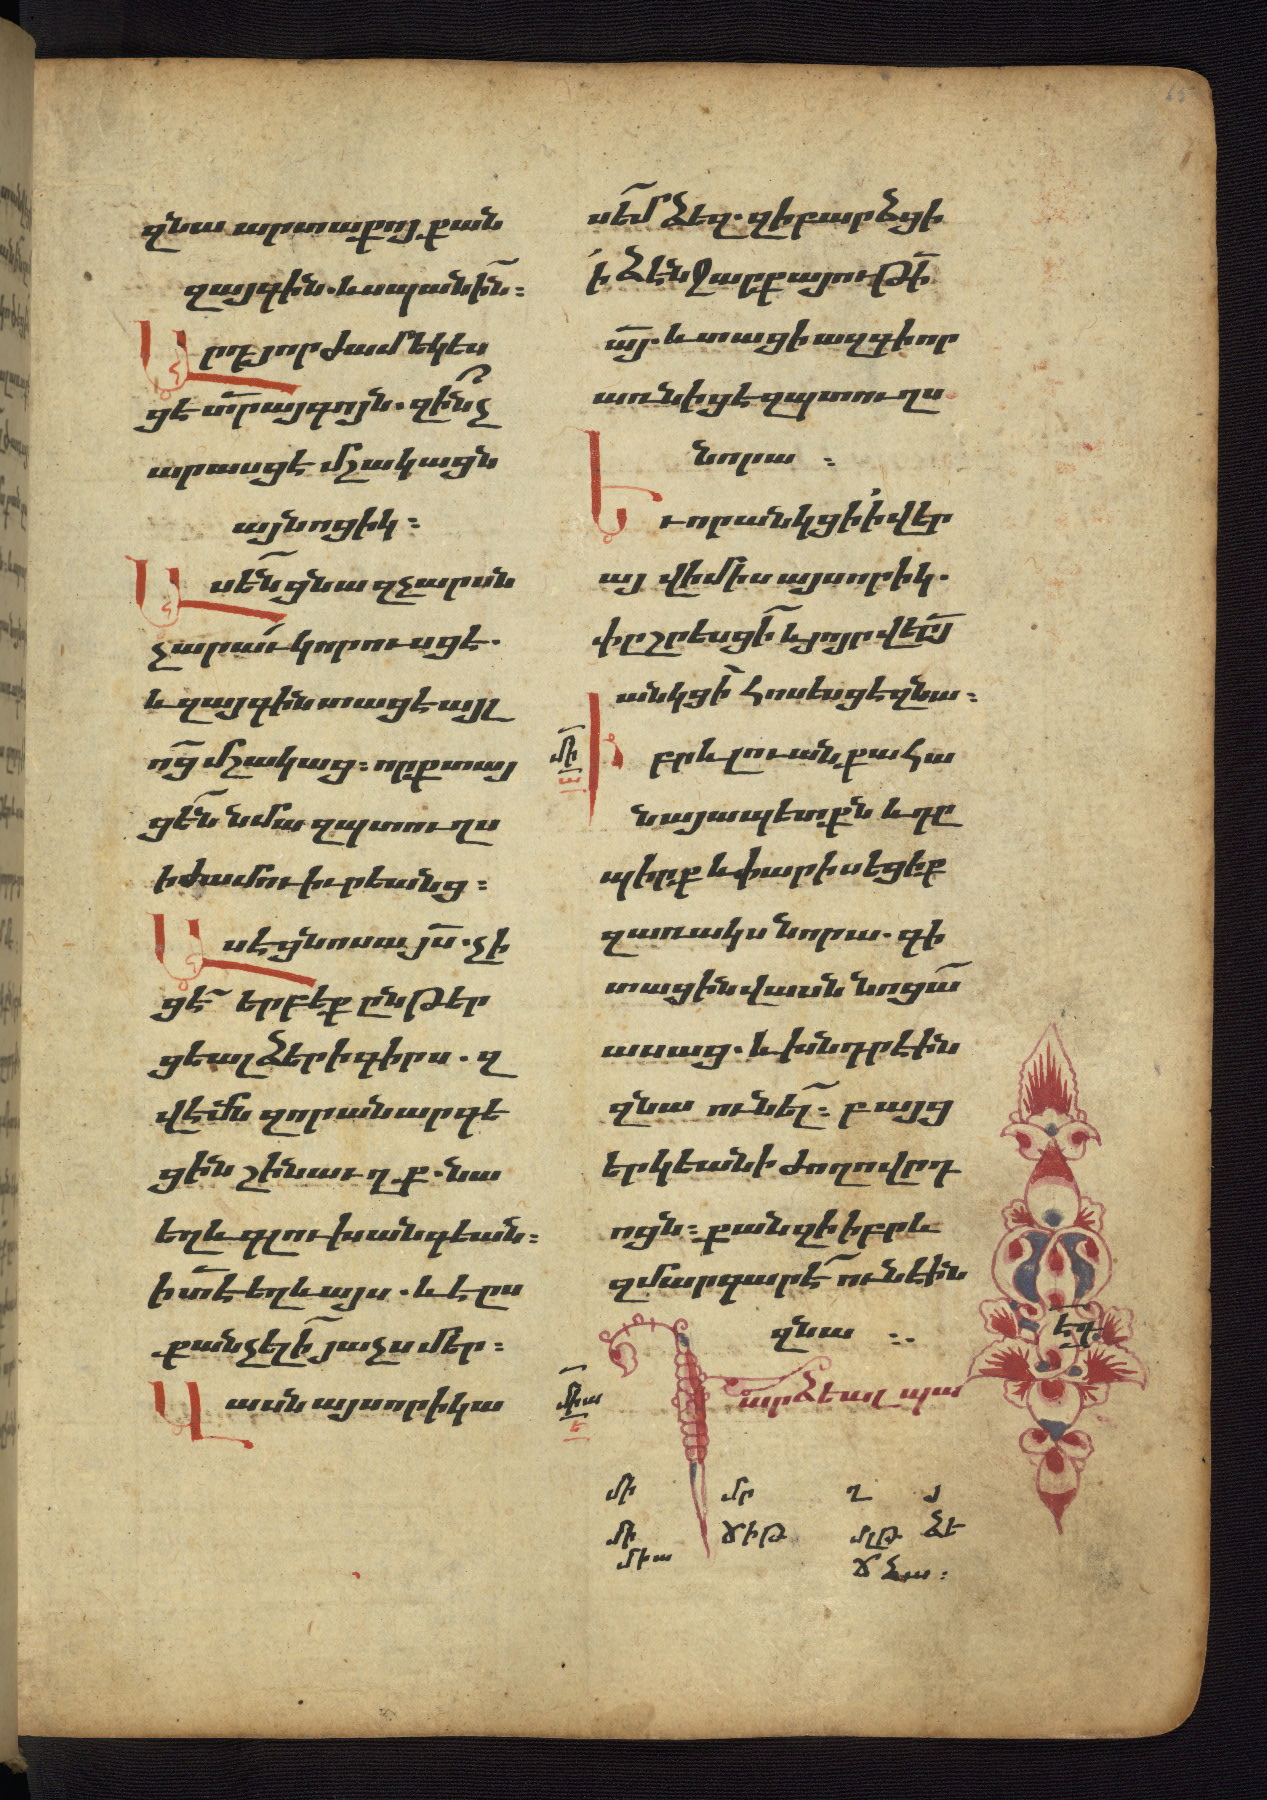 զնա արտաքոյ քան
զայգին. և սպանին։
Արդ յորժամ եկես
ցէ տ̅րայգոյն. զի՞նչ
արասցէ մշակացն
այնոցիկ։
Ասեն ցնա զչարսն
չարաւ կորուսցէ.
և զայգին տացէ այլ
ո̅ց մշակաց։ որք տայ
ցեն նմա զպտուղս
ի ժամու իւրեանց։
Ասէ ցնոսա յ̅ս. չի
ցէ երբեք ընթեր
ցեալ ձեր ի գիրս. զ
վէմն զոր անարգե
ցին շինաւղք. նա
եղև գլուխ անգեան։
ի տ̅է եղև այս. և է ըս
քանչելի յաչս մեր։
Վասն այսորիկ ա
սեմ ձեզ. զի բարձցի
ի ձէնջ արքայութի̅
ա̅յ. և տացի ազգի որ
առնիցէ զպտուղս
նորա ։
Եւ որ անկցի ի վեր
այ վիմիս այսորիկ.
փըշրեսցի և յոյր վե̅ր̅յ
անկցի հոսեսցէ զնա։
մի
Իբրև լուան քահա
նայապետքն և դը
պիրք և փարիսեցեք
զառակս նորա. գի
տացին վասն նոցա
ասաց. և խնդրէին
զնա ունել։ բայց
երկեանի ժողովըրդ
ոցն։ քանզի իբրև
զմարգարէ ունէին
զնա ։.
էգ
միա
ե
արձեալ պա
մի մր ղ յ
մի ճիթ մլթ ձե
միա ճհա։